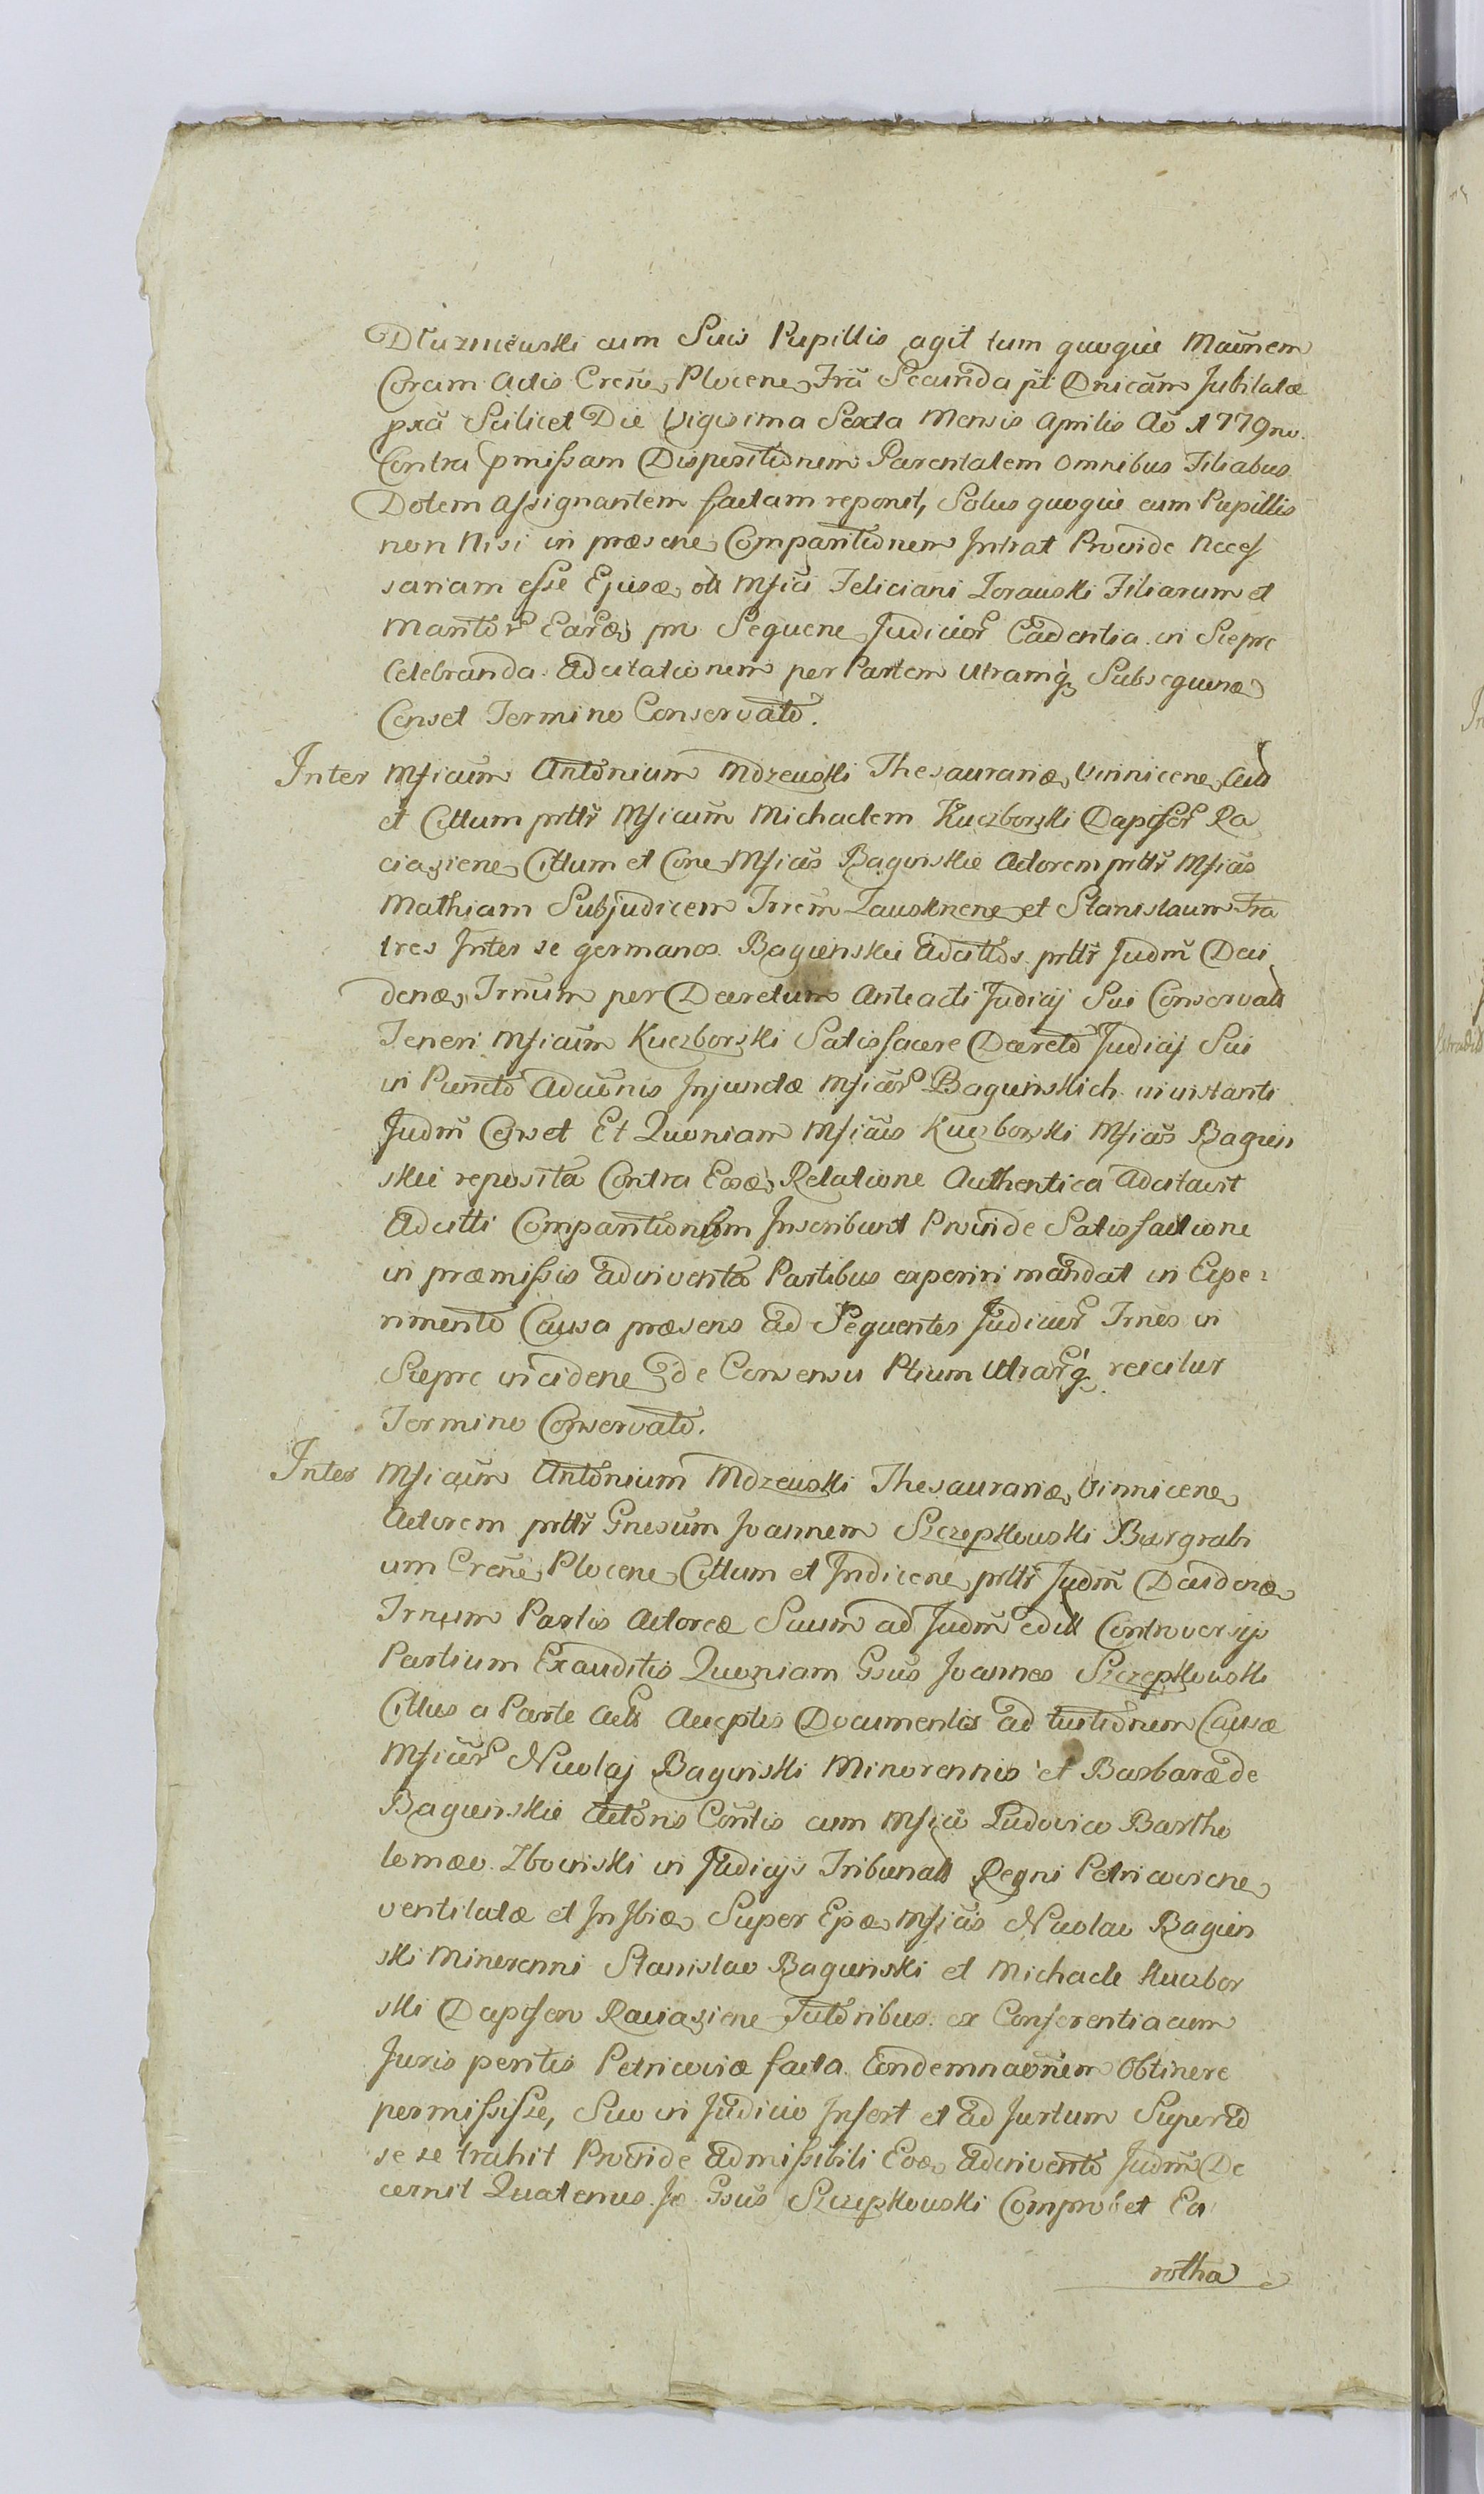 Dłuzniewski cum Suis Pupillis agit tum quoque Maõnem
Coram Actis Cren̄ Plocen Fria Secunda pt Dnicam Jubilatæ
pxã Scilicet Die Vigesima Sexta Mensis Aprilis Aō 1779no.
Contra pmissam Dispositionem Parentalem Omnibus Filiabus
Dotem assignantem factam reponit, Solus quoque cum Pupillis
non Nisi in præsene Comparitionem Intrat Provide Neces
sariam esse Ejusd oli Mfici Feliciani Zorawski Filiarum et
Maritor Eard pro Sequen Judicior Cadentia in Siepre
Celebranda Adcitationem per Partem Utramq Subsequend
Censet Termino Conservato.
Inter Mficum Antonium Mdzewski Thesaurariæ Vinnicene
et Cittum prttr Mficum Michaelem Kuczborski Dapifer Ra
ciąziene Cittum et Mficos Bagińskie Actorem prttr Mficos
Mathiam Subjudicem Trrem Zauskrnene et Stanislaum Fra
tres Inter se germanos Bagienskie Adcittos prttr Judm Deci
dend Trnum per Decretum Anteacti Judicij Sui Conservatt
Teneri Mficum Kuczborski Satisfacere Decreto Judicij Sui
in Puncto Adcõnis Injunctæ Mficor Baguinskich in instanti
Judm Censet Et Quoniam Mficus Kuczborski Mficos Bagien
skie reposita Contra Eosd Relatione Authentica Adcitavit
Adcitti Comparitionem Inscribunt Proinde Satisfactione
in præmissis adinventa Partibus experiri mandat in Expe
rimento Causa præsens ad Sequentes Judicior Trnes in
Siepre incidene de Consensu Ptium Utrarq reicitur
Termino Conservato.
Inter Mficum Antonium Mdzewski Thesaurariæ Vinnicene
Actorem prttr Gnesum Joannem Szczepkowski Burgrabi
um Cren̄ Plocene Cittum et Indicene prttr Judm Decidend
Trnum Partis Actoreæ Suum ad Judm edit Controversijs
Partium Exauditis Quoniam Gsus Joannes Szczepkowski
Cittus a Parte Actt Acceptis Documentis ad tuitionem Causæ
Mficor Nicolaj Bagiński Minorennis et Barbaræ de
Bagienskie Actoris Contis cum Mfico Ludovico Bartho
lomæo Zboiński in Judicijs Tribunatt Regni Petricoviene
ventilatæ et Super Mficis Nicolao Bagien
ski Minorenni Stanislao Baguinski et Michaele Kuczbor
ski Dapifero Raciąziene Tutoribus ex Conferentia cum
Juris peritis Petricoviæ facta Condemnaõnem Obtinere
permisisse, Suo in Judicio Infert et ad Jurtum Super id
se se trahit Proinde admissibili Eod adinvento Judm De
cernit Quatenus Jd Gsus Szczepkowski Comprobet Ea
rotha